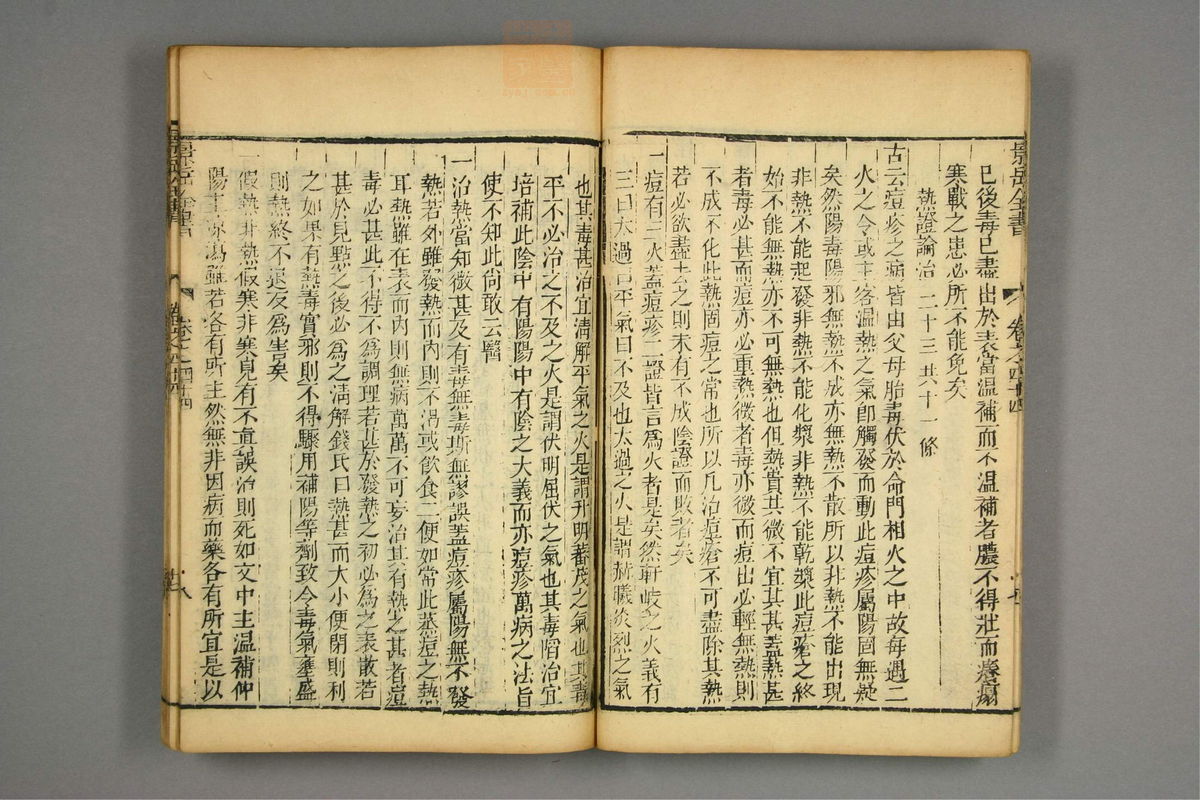 景岳全書
卷之四十四
已後毒已盡出於表當温補而不温補者膿不得壯而癢塌
寒戰之患必所不能免矣
熱證論治 二十三 共十一條
古云痘疹之病皆由父母胎毒伏於命門相火之中故每遇二
火之令或主客温熱之氣卽觸發而動此痘疹屬陽固無疑
矣然陽毒陽邪無熱不成亦無熱不散所以非熱不能出現
非熱不能起發非熱不能化漿非熱不能乾漿此痘瘡之終
始不能無熱亦不可無熱也但熱貴其微不宜其甚蓋熱甚
者毒必甚而痘亦必重熱微者毒亦微而痘出必輕無熱則
不成不化此熱固痘之常也所以凡治痘瘡不可盡除其熱
若必欲盡去之則未有不成陰證而敗者矣
一痘有三火蓋痘疹二證皆言爲火者是矣然軒岐之火義有
三曰太過曰平氣曰不及也太過之火是謂赫曦炎烈之氣
也其毒甚治宜清解平氣之火是謂升明蕃茂之氣也其毒
平不必治之不及之火是謂伏明屈伏之氣也其毒陷治宜
培補此陰中有陽陽中有陰之大義而亦痘疹萬病之法旨
使不知此尚敢云醫
一治熱當知微甚及有毒無毒斯無謬誤蓋痘疹屬陽無不發
熱若外雖發熱而內則不渴或飲食二便如常此蒸痘之熱
耳熱雖在表而內則無病萬萬不可妄治其有熱之甚者豈
毒必甚此不得不爲調理若甚於發熱之初必爲之表散若
甚於見點之後必爲之清解錢氏曰熱甚而大小便閉則利
之如果有熱毒實邪則不得驟用補陽等劑致令毒氣壅盛
則熱終不退反爲害矣
一假熱非熱假寒非寒見有不眞誤治則死如文中主温補仲
陽主凉瀉雖若各有所主然無非因病而藥各有所宜是以
景岳全書
卷之四十四